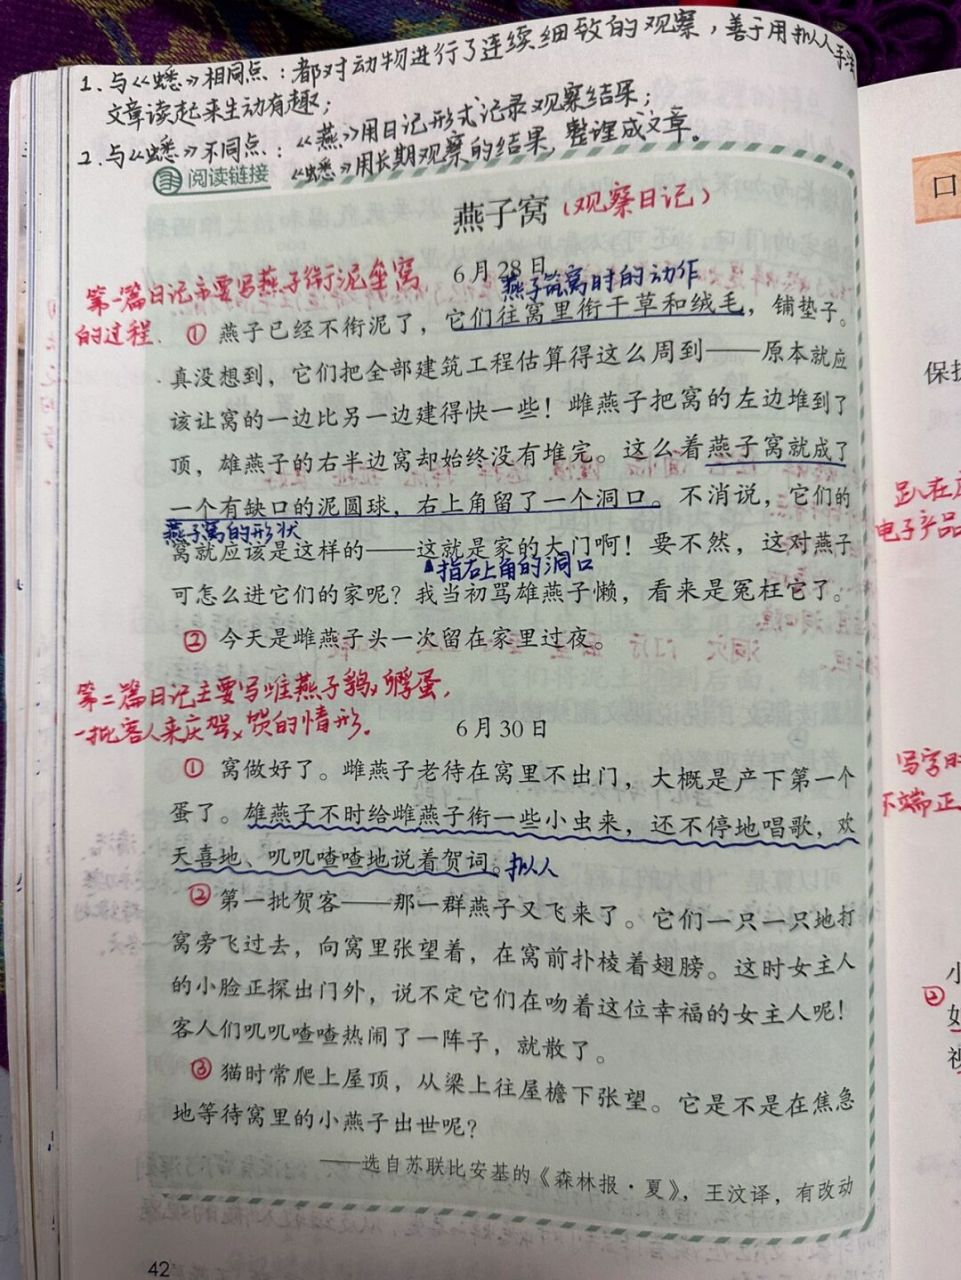 1、与《蟋》相同点：都对动物进行了连续细致的观察，善于用拟人手法
文章读起来生动有趣；
2、与《蟋》不同点：《燕》用日记形式记录观察结果；
《蟋》用长期观察的结果，整理成文章。
阅读链接
燕子窝（观察日记）
6月28日
第一篇日记主要写燕子衔泥垒窝
的过程.
燕子筑窝时的动作
① 燕子已经不衔泥了，它们往窝里衔干草和绒毛，铺垫子。
真没想到，它们把全部建筑工程估算得这么周到——原本就应
该让窝的一边比另一边建得快一些！雌燕子把窝的左边堆到了
顶，雄燕子的右半边窝却始终没有堆完。这么着燕子窝就成了
一个有缺口的泥圆球，右上角留了一个洞口。不消说，它们的
燕子窝的形状
窝就应该是这样的——这就是家的大门啊！要不然，这对燕子
指右上角的洞口
可怎么进它们的家呢？我当初骂雄燕子懒，看来是冤枉它了。
② 今天是雌燕子头一次留在家里过夜。
第二篇日记主要写雌燕子孵蛋，
一批客人来庆贺的情形。
6月30日
① 窝做好了。雌燕子老待在窝里不出门，大概是产下第一个
蛋了。雄燕子不时给雌燕子衔一些小虫来，还不停地唱歌，欢
天喜地、叽叽喳喳地说着贺词。拟人
② 第一批贺客——那一群燕子又飞来了。它们一只一只地打
窝旁飞过去，向窝里张望着，在窝前扑棱着翅膀。这时女主人
的小脸正探出门外，说不定它们在吻着这位幸福的女主人呢！
客人们叽叽喳喳热闹了一阵子，就散了。
③ 猫时常爬上屋顶，从梁上往屋檐下张望。它是不是在焦急
地等待窝里的小燕子出世呢？
——选自苏联比安基的《森林报·夏》，王汶译，有改动
42
口
保护
趴在
电子产品
写字时
不端正
小
②